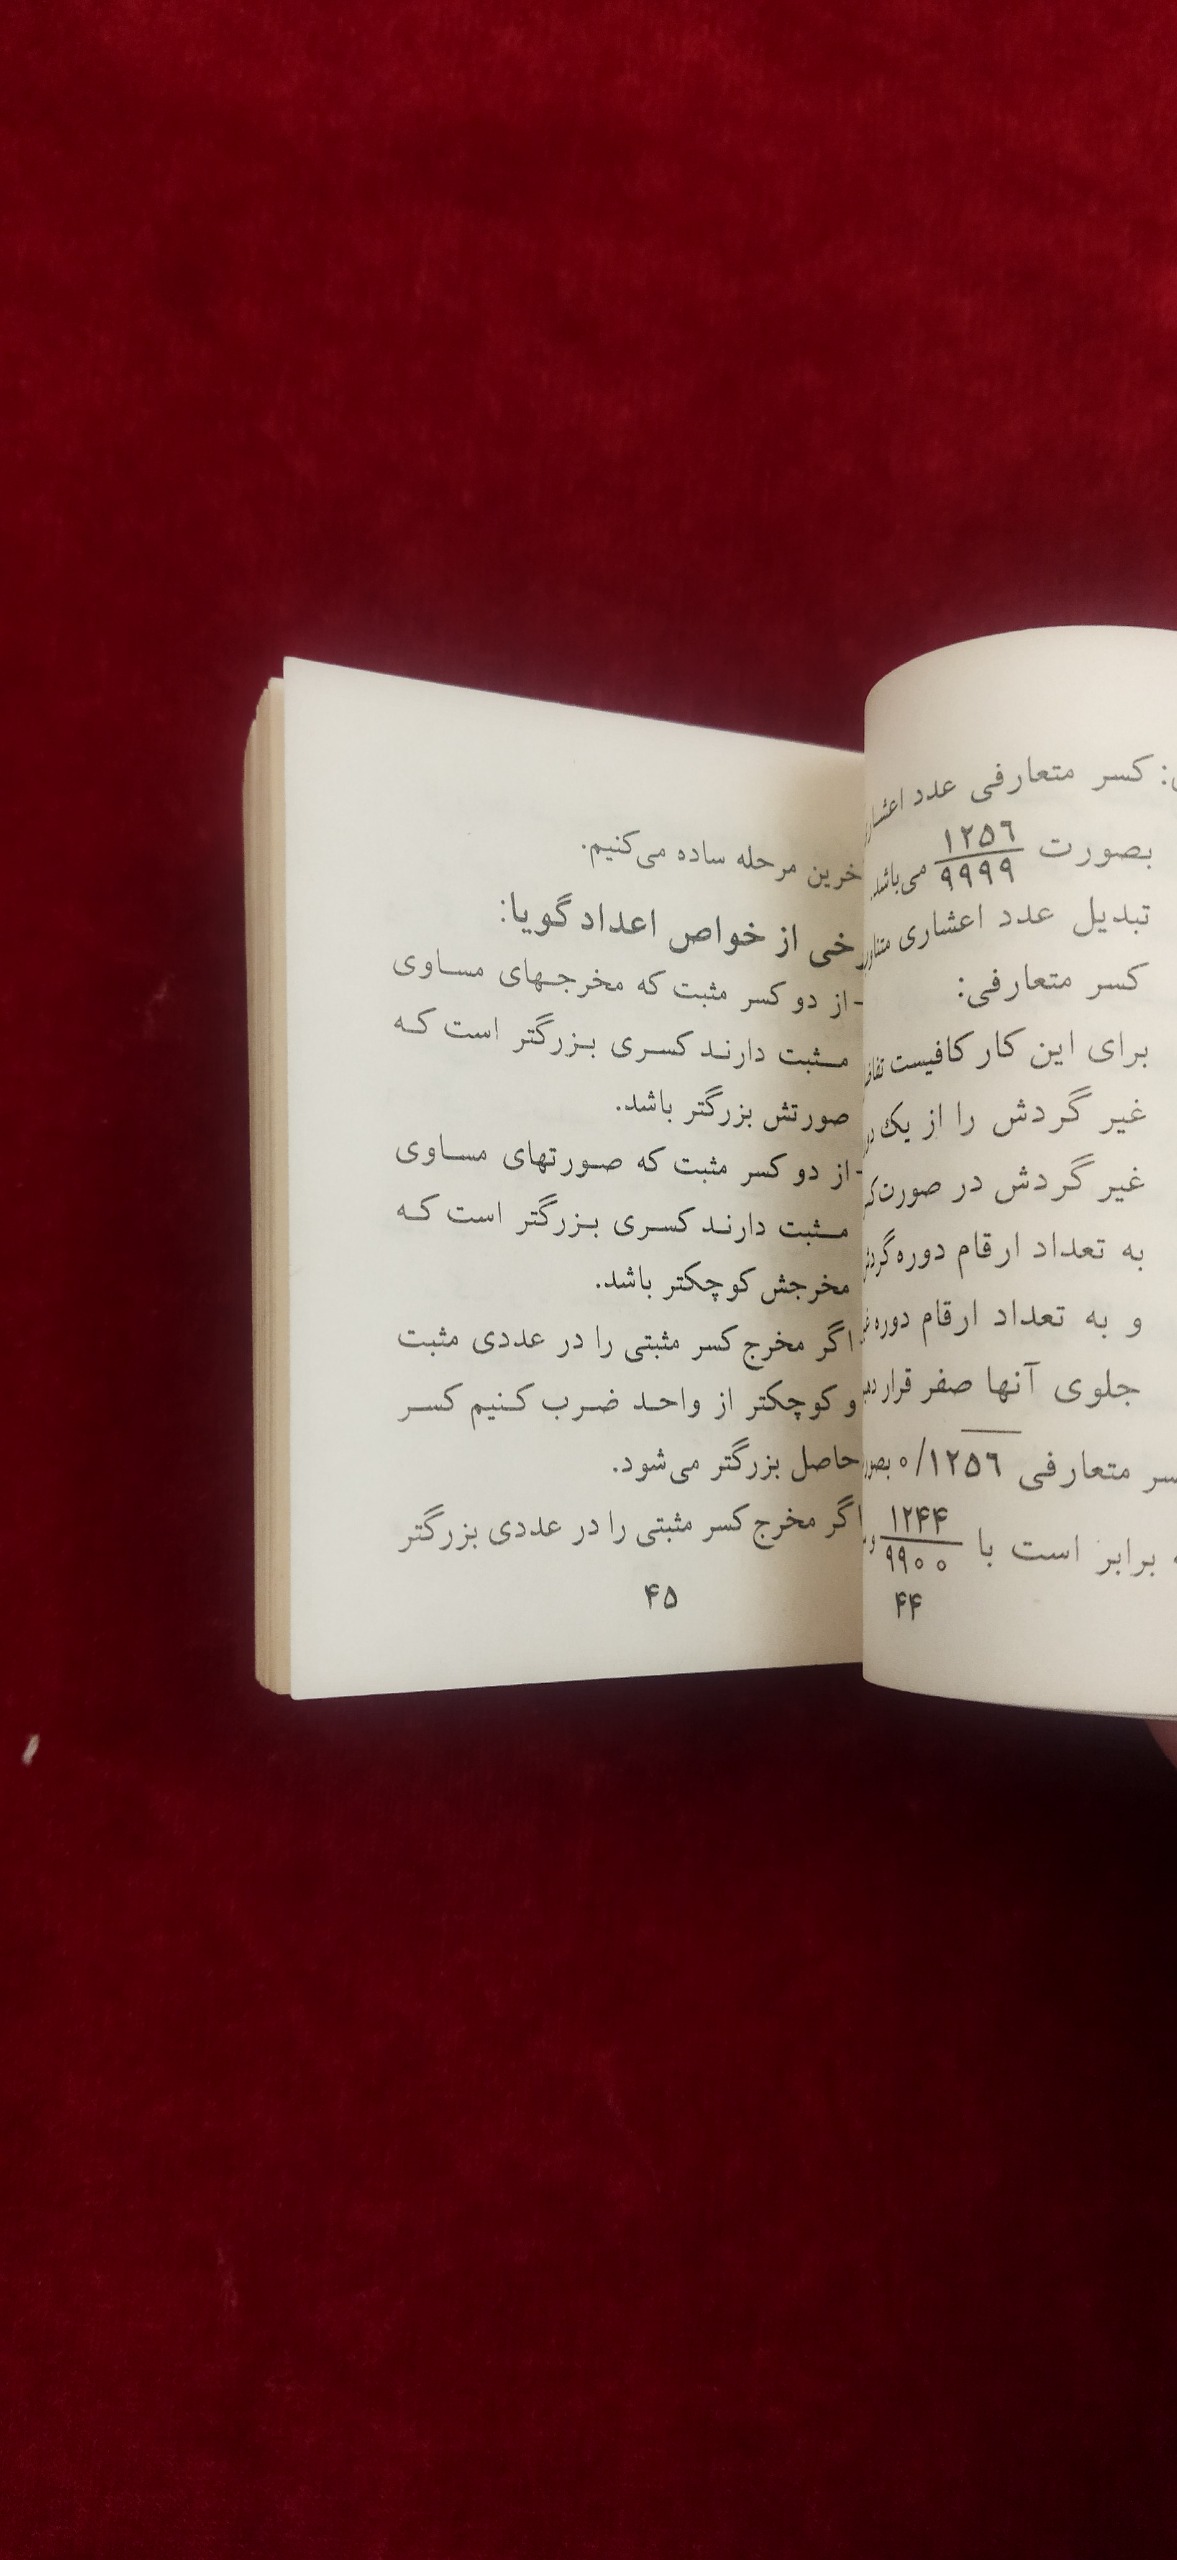 : کسر متعارفی عدد
بصورت ۱۲۵۶/۹۹۹۹ می‌باشد.
تبدیل عدد اعشاری
کسر متعارفی:
برای این کار کافیست
غیر گردش را از یک
غیر گردش در صورت
به تعداد ارقام دوره
و به تعداد ارقام دوره
جلوی آنها صفر قرار
متعارفی ۰/۱۲۵۶
برابر است با ۱۲۴۴/۹۹۰۰
۴۴
مرحله ساده می‌کنیم.
از خواص اعداد گویا:
- از دو کسر مثبت که مخرجهای مساوی
مثبت دارند کسری بزرگتر است که
صورتش بزرگتر باشد.
- از دو کسر مثبت که صورتهای مساوی
مثبت دارند کسری بزرگتر است که
مخرجش کوچکتر باشد.
اگر مخرج کسر مثبتی را در عددی مثبت
و کوچکتر از واحد ضرب کنیم کسر
حاصل بزرگتر می‌شود.
اگر مخرج کسر مثبتی را در عددی بزرگتر
۴۵